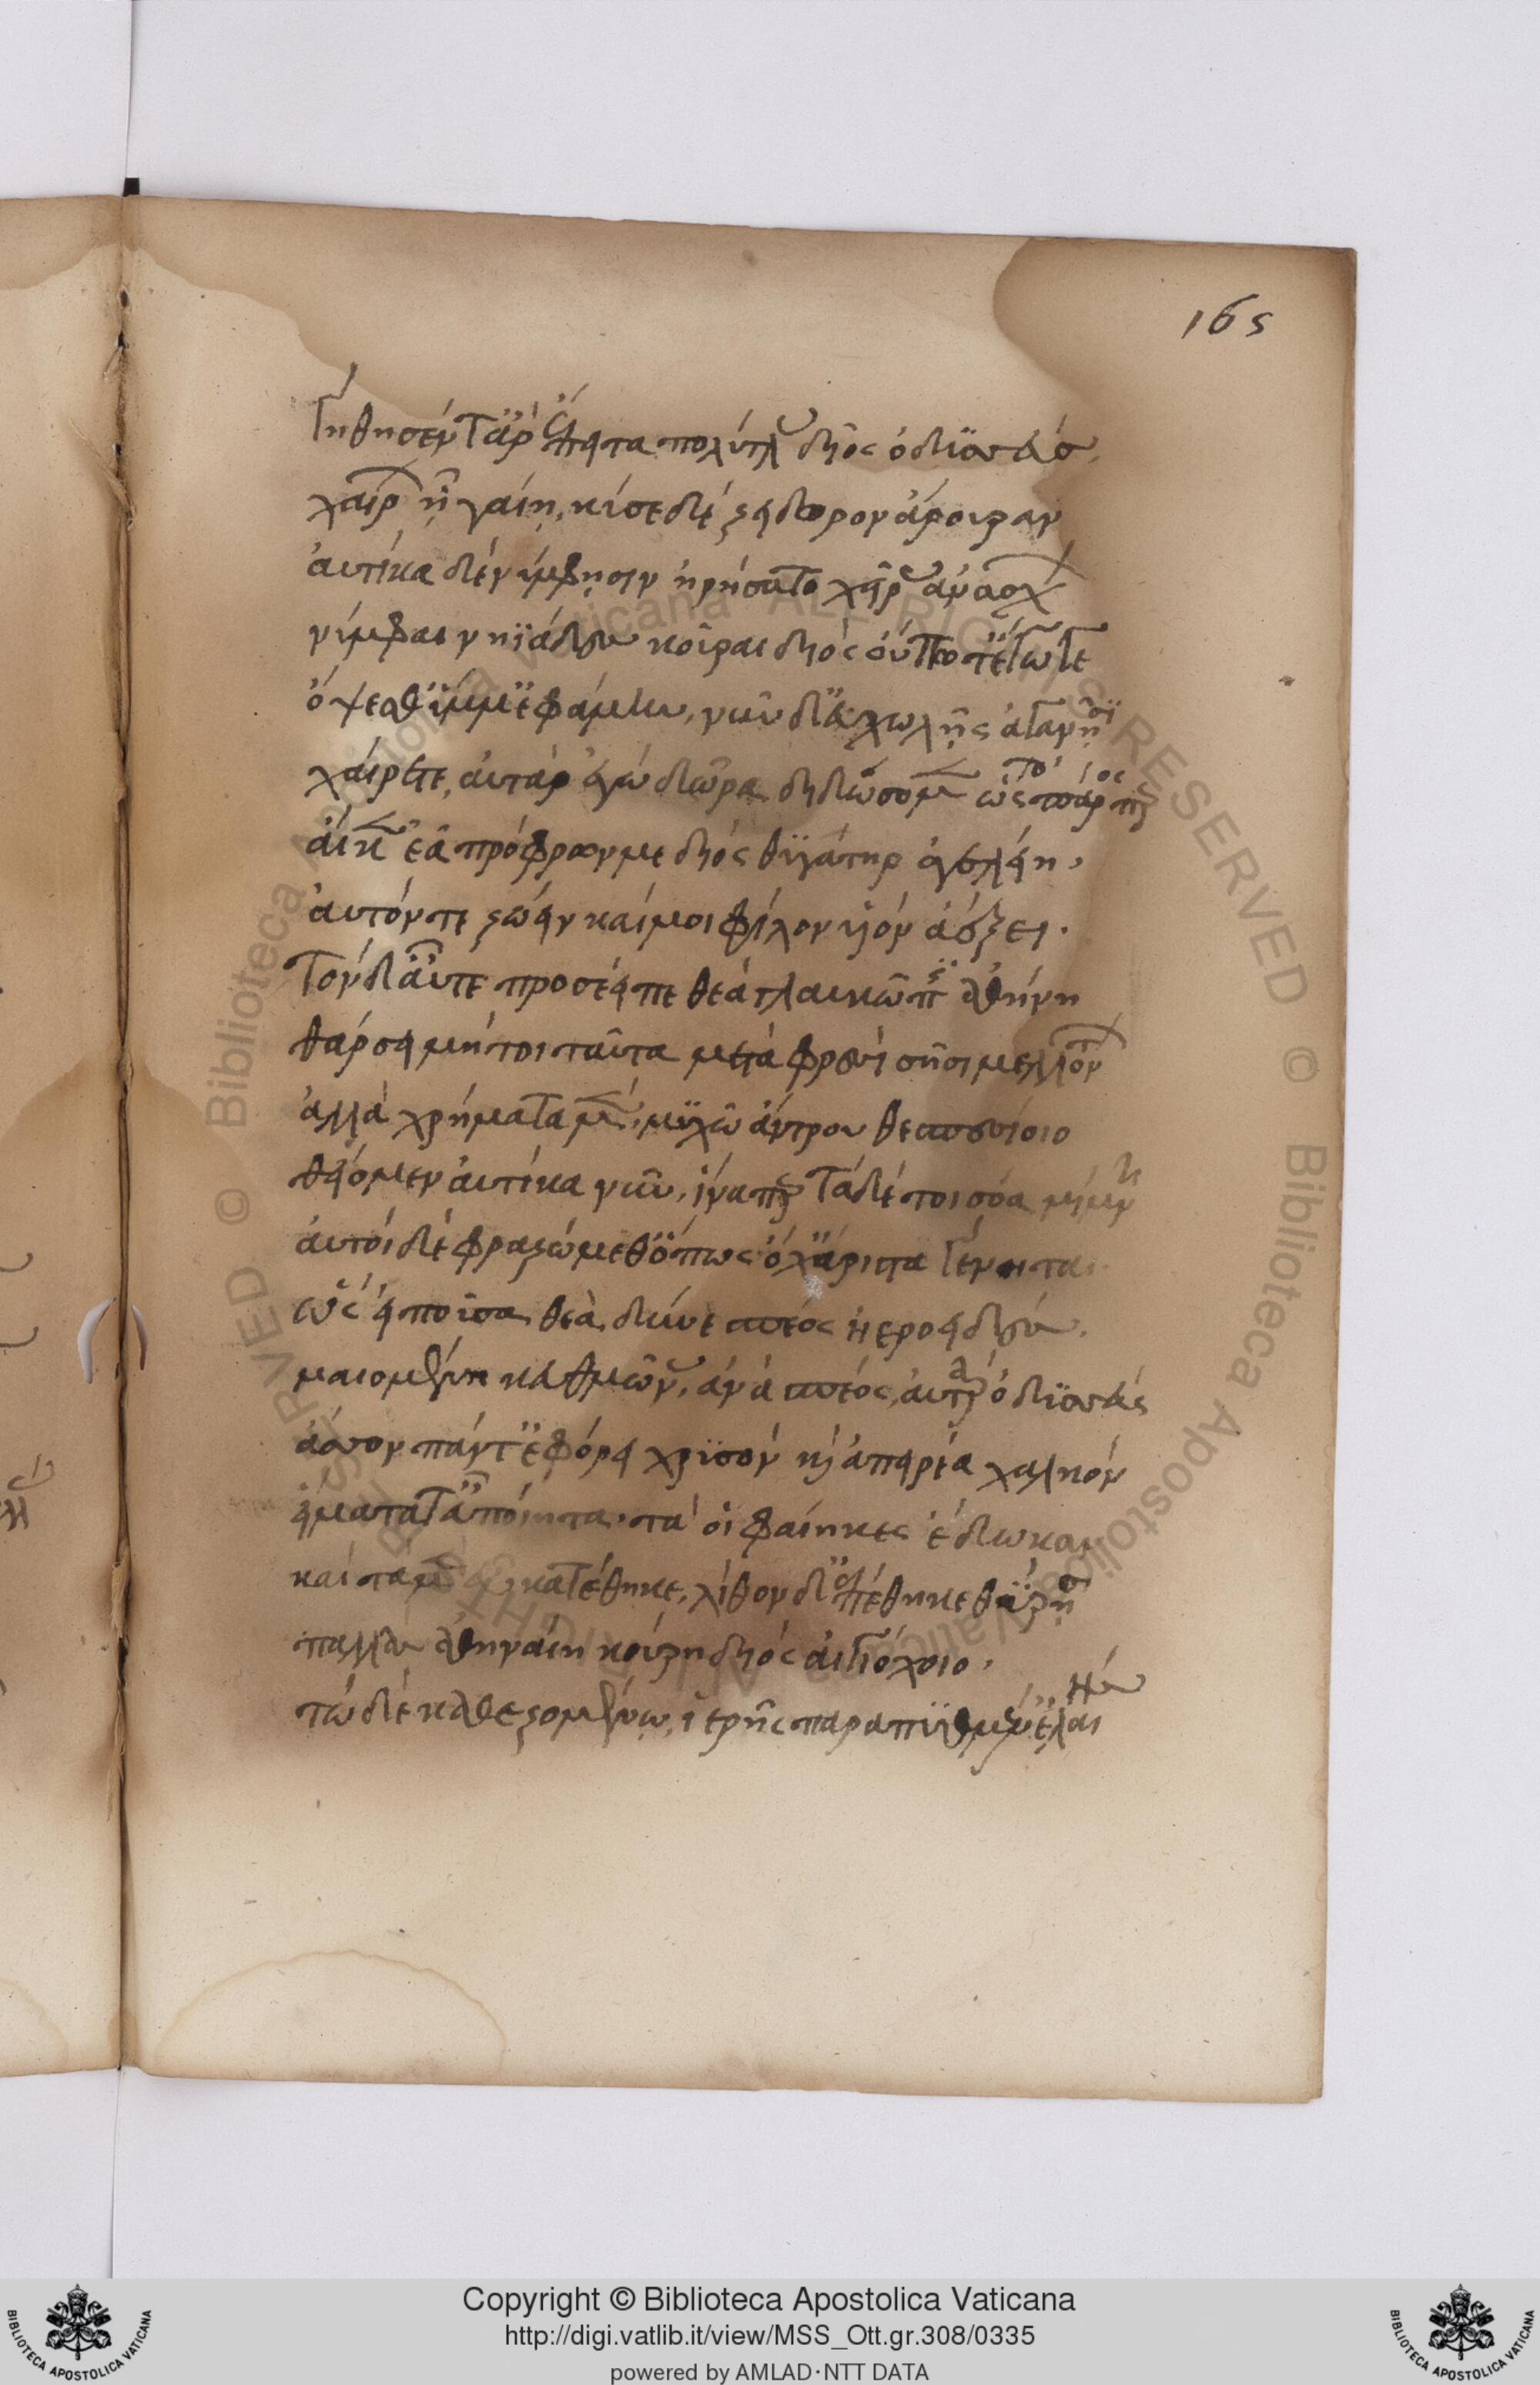 165
Γήθησέν τ' ἄρ' ἔπειτα πολύτλας δῖος ὀδυσσεύς,
χαίρων ᾗ γαίῃ, κύσε δὲ ζείδωρον ἄρουραν
αὐτίκα δὲ νύμφῃσιν ἠρήσατο χεῖρας ἀνασχών
νύμφαι νηϊάδες κοῦραι διός οὔποτ' ἔγωγε
ὄψεσθ' ὔμμ' ἐφάμην, νῦν δ' εὐχωλῇς ἀγανῇσι
χαίρετε, ἀτὰρ καὶ δῶρα διδώσομεν ὡς τοπάρος περ
αἴ κεν ἐᾷ πρόφρων με διὸς θυγάτηρ ἀγελείη,
αὐτόν τε ζώειν καί μοι φίλον υἱὸν ἀέξει.
Τὸν δ' αὖτε προσέειπε θεὰ γλαυκῶπις ἀθήνη
θάρσει μή τοι ταῦτα μετὰ φρεσὶ σῇσι μελλόντων
ἀλλὰ χρήματα μὲν μυχῶ ἄντρου θεσπεσίοιο
θείομεν αὐτίκα νῦν, ἵνα περ τάδε τοι σόα μίμνῃ
αὐτοὶ δὲ φραζώμεθ' ὅπως ὄχ' ἄριστα γένηται.
ὣς εἰποῦσα θεὰ δῦνε σπέος ἠεροειδές.
μαιομένη κευθμῶνας ἀνὰ σπέος, αὐτὰρ ὀδυσσεύς
ἄσσον πάντ' ἐφόρει χρυσὸν καὶ ἀτειρέα χαλκόν
εἵματά τ' εὐποίητα, τά οἱ φαίηκες ἔδωκαν
καὶ τὰ μὲν εὖ κατέθηκε, λίθον δ' ἐπέθηκε θύρῃσι
παλλὰς ἀθηναίη κούρη διὸς αἰγιόχοιο,
τὼ δὲ καθεζομένω, ἱερῆς παρὰ πυθμέν' ἐλαίης
Copyright © Biblioteca Apostolica Vaticana
http://digi.vatlib.it/view/MSS_Ott.gr.308/0335
powered by AMLAD·NTT DATA